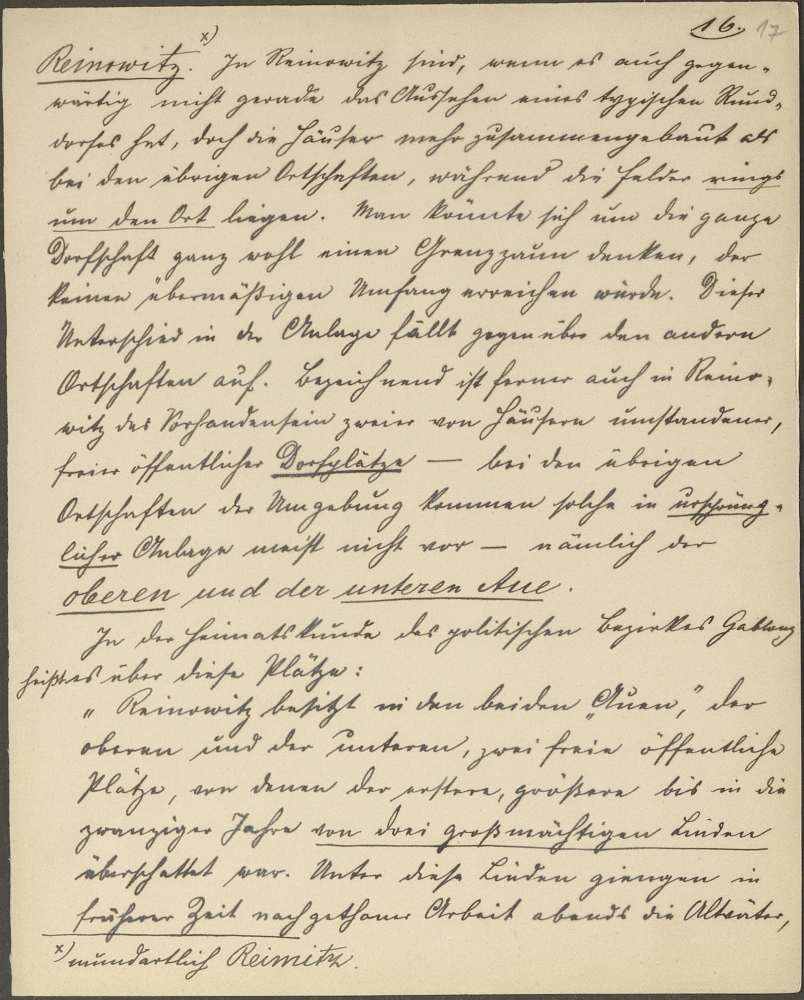 16. 17
Reinowitz.ˣ⁾ In Reinowitz sind, wenn es auch gegen-
wärtig nicht gerade das Aussehen eines typischen Rund-
dorfes hat, doch die Häuser mehr zusammengebaut als
bei den übrigen Ortschaften, während die Felder rings
um den Ort liegen. Man könnte sich um die ganze
Dorfschaft ganz wohl einen Grenzzaun denken, der
keinen übermäßigen Umfang erreichen würde. Dieser
Unterschied in der Anlage fällt gegenüber den andern
Ortschaften auf. Bezeichnend ist ferner auch in Reino-
witz das Vorhandensein zweier von Häusern umstandener,
freier öffentlicher Dorfplätze — bei den übrigen
Ortschaften der Umgebung kommen solche in ursprüng-
licher Anlage meist nicht vor — nämlich der
oberen und der unteren Aue.
In der Heimatskunde des politischen Bezirkes Gablonz
heißt es über diese Plätze:
„Reinowitz besitzt in den beiden „Auen," der
oberen und der unteren, zwei freie öffentliche
Plätze, von denen der erstere, größere bis in die
zwanziger Jahre von drei großmächtigen Linden
überschattet war. Unter diese Linden giengen in
früherer Zeit nach gethaner Arbeit abends die Altväter,
ˣ⁾ mundartlich Reimitz.